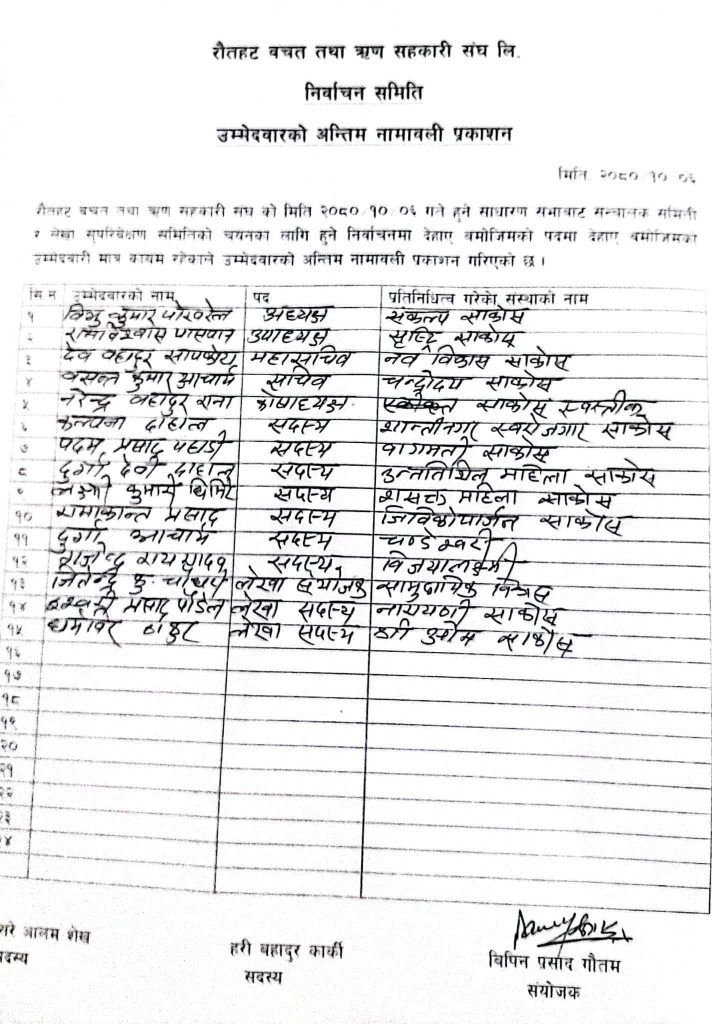 रौतहट बचत तथा ऋण सहकारी संघ लि.
निर्वाचन समिति
उम्मेदवारको अन्तिम नामावली प्रकाशन
मिति. २०८०/१०/०६
रौतहट बचत तथा ऋण सहकारी संघ को मिति २०८०/१०/०६ गते हुने साधारण सभाबाट सन्चालक समिती
र लेखा सुपरिवेक्षण समितिको चयनका लागि हुने निर्वाचनमा देहाए बमोजिमको पदमा देहाए बमोजिमको
उम्मेदवारी मात्र कायम रहेकाले उम्मेदवारको अन्तिम नामावली प्रकाशन गरिएको छ ।
सि न उम्मेदवारको नाम पद प्रतिनिधित्व गरेको संस्थाको नाम
१ विभु कुमार पोखरेल अध्यक्ष संकल्प साकोस
२ पासवान उपाध्यक्ष सृष्टि साकोस
३ देव बहादुर सापकोटा महासचिव नव विकास साकोस
४ वसन्त कुमार आचार्य सचिव चन्द्रोदय साकोस
५ नरेन्द्र बहादुर राना कोषाध्यक्ष साकोस स्वस्तीक
६ कल्पना दाहाल सदस्य शान्तीनगर स्वरोजगार साकोस
७ पदम प्रसाद पहाडी सदस्य वागमती साकोस
८ दुर्गा देवी दाहाल सदस्य उन्नतिशिल महिला साकोस
९ लक्ष्मी कुमारी घिमिरे सदस्य शसक्त महिला साकोस
१० रामाकान्त प्रसाद सदस्य जिविकोपार्जन साकोस
११ दुर्गा आचार्य सदस्य चण्डेश्वरी
१२ राजेन्द्र राय यादव सदस्य विजयालक्ष्मी
१३ जितेन्द्र कु. चौधरी लेखा संयोजक सामुदायिक
१४ प्रसाद पौडेल लेखा सदस्य नारायणी साकोस
१५ ठाकुर लेखा सदस्य श्री ओम साकोस
१६
१७
१८
१९
२०
२१
२२
२३
२४
आलम शेख हरी बहादुर कार्की बिपिन प्रसाद गौतम
सदस्य सदस्य संयोजक